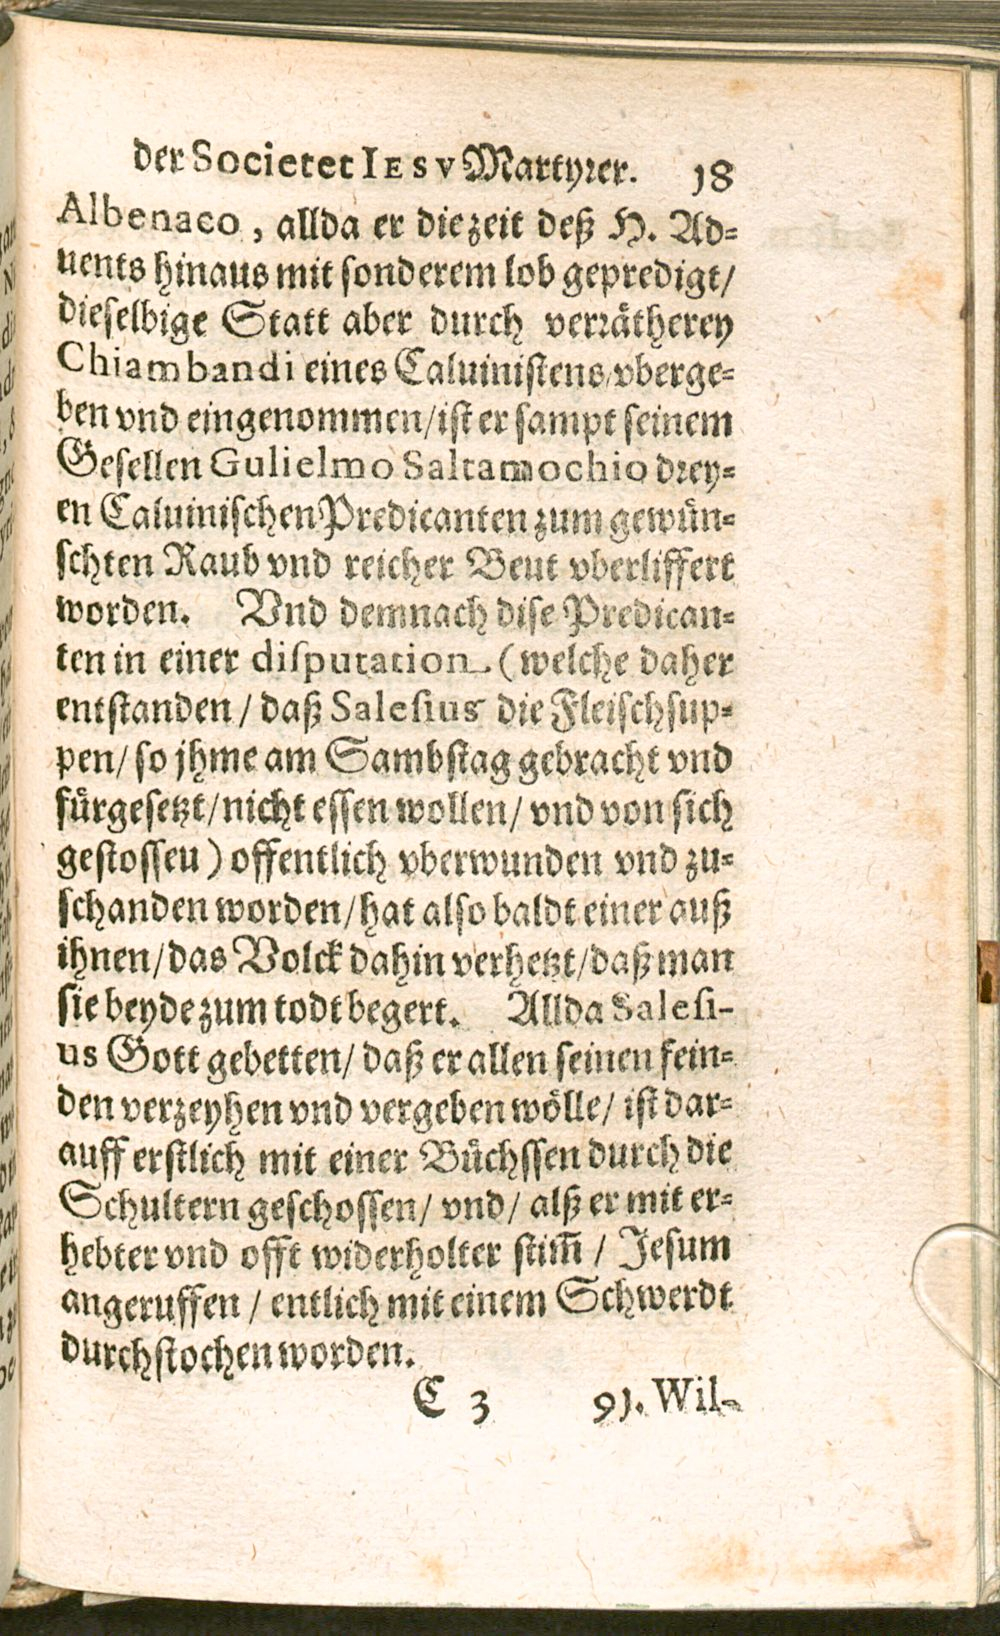 der Societet IESV Martyrer. 18
Albenaco, allda er die zeit deß H. Ad-
uents hinaus mit sonderem lob gepredigt/
dieselbige Statt aber durch verrätherey
Chiambandi eines Caluinistens/vberge-
ben vnd eingenommen/ist er sampt seinem
Gesellen Gulielmo Saltamochio drey-
en Caluinischen Predicanten zum gewün-
schten Raub vnd reicher Beut vberliffert
worden. Vnd demnach dise Predican-
ten in einer disputation (welche daher
entstanden/ daß Salesius die Fleischsup-
pen/ so jhme am Sambstag gebracht vnd
fürgesetzt/nicht essen wollen/ vnd von sich
gestosseu) offentlich vberwunden vnd zu-
schanden worden/hat also baldt einer auß
ihnen/das Volck dahin verhetzt/daß man
sie beyde zum todt begert. Allda Salesi-
us Gott gebetten/ daß er allen seinen fein-
den verzeyhen vnd vergeben wölle/ ist dar-
auff erstlich mit einer Büchssen durch die
Schultern geschossen/ vnd/ alß er mit er-
hebter vnd offt widerholter stim̄ / Jesum
angeruffen / entlich mit einem Schwerdt
durchstochen worden.
C 3 91. Wil-